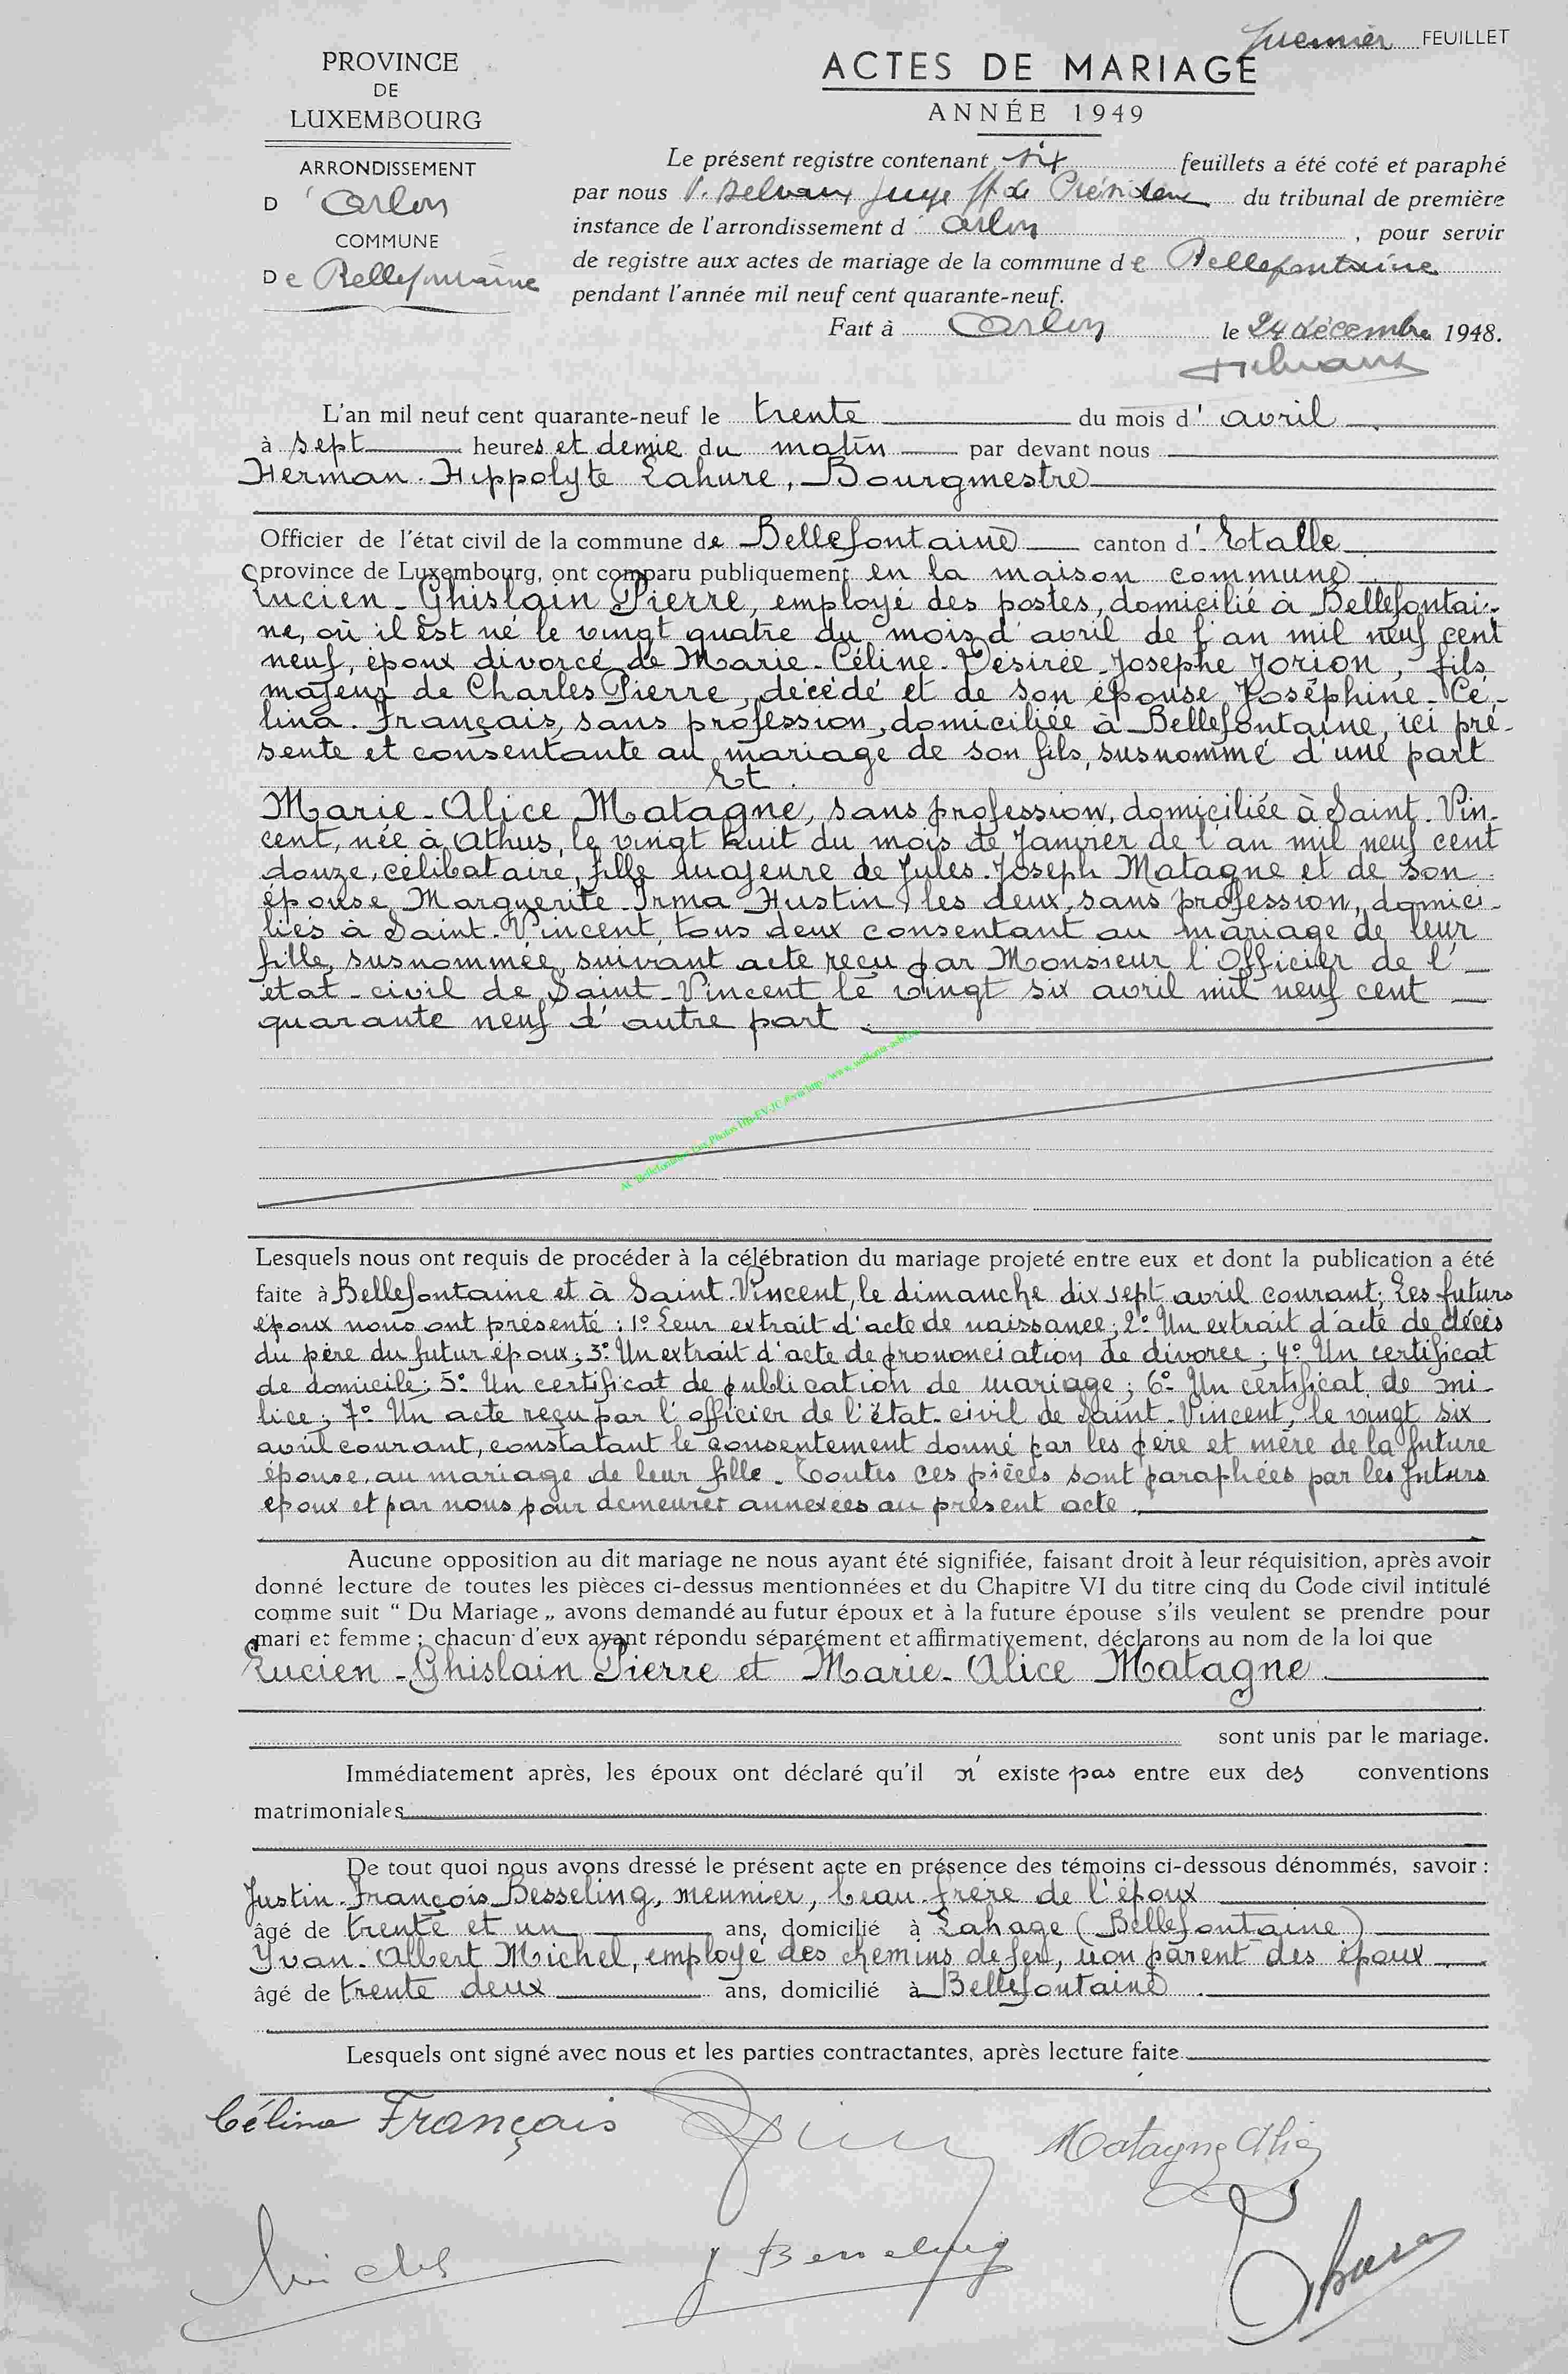 premier FEUILLET
PROVINCE
DE
LUXEMBOURG
ARRONDISSEMENT
D 'Arlon
COMMUNE
De Bellefontaine
ACTES DE MARIAGE
ANNÉE 1949
Le présent registre contenant six feuillets a été coté et paraphé
par nous P. Delvaux Juge ff de Président du tribunal de première
instance de l'arrondissement d' Arlon, pour servir
de registre aux actes de mariage de la commune de Bellefontaine
pendant l'année mil neuf cent quarante-neuf.
Fait à Arlon le 24 décembre 1948.
Delvaux
L'an mil neuf cent quarante-neuf le trente du mois d' avril
à sept heures et demie du matin par devant nous
Herman-Hippolyte Lahure, Bourgmestre
Officier de l'état civil de la commune de Bellefontaine canton d'Etalle
province de Luxembourg, ont comparu publiquement en la maison commune
Lucien-Ghislain Pierre, employé des postes, domicilié à Bellefontai-
ne, où il est né le vingt quatre du mois d'avril de l'an mil neuf cent
neuf, époux divorcé de Marie-Céline-Désirée-Josephe Jorion, fils
majeur de Charles Pierre, décédé et de son épouse Joséphine-Cé-
lina-Français, sans profession, domiciliée à Bellefontaine, ici pré-
sente et consentante au mariage de son fils, susnommé d'une part
Et
Marie-Alice Matagne, sans profession, domiciliée à Saint-Vin-
cent, née à Athus, le vingt huit du mois de Janvier de l'an mil neuf cent
douze, célibataire, fille majeure de Jules-Joseph Matagne et de son
épouse Marguerite-Irma Hustin, les deux, sans profession, domici-
liés à Saint-Vincent, tous deux consentant au mariage de leur
fille, susnommée, suivant acte reçu par Monsieur l'Officier de l'
état-civil de Saint-Vincent le vingt six avril mil neuf cent
quarante neuf d'autre part.
Lesquels nous ont requis de procéder à la célébration du mariage projeté entre eux et dont la publication a été
faite à Bellefontaine et à Saint-Vincent, le dimanche dix sept avril courant; Les futurs
époux nous ont présenté : 1° Leur extrait d'acte de naissance; 2° Un extrait d'acte de décès
du père du futur époux; 3° Un extrait d'acte de prononciation de divorce; 4° Un certificat
de domicile; 5° Un certificat de publication de mariage; 6° Un certificat de mi-
lice; 7° Un acte reçu par l'officier de l'état-civil de Saint-Vincent, le vingt six
avril courant, constatant le consentement donné par les père et mère de la future
épouse, au mariage de leur fille. Toutes ces pièces sont paraphées par les futurs
époux et par nous pour demeurer annexées au présent acte.
Aucune opposition au dit mariage ne nous ayant été signifiée, faisant droit à leur réquisition, après avoir
donné lecture de toutes les pièces ci-dessus mentionnées et du Chapitre VI du titre cinq du Code civil intitulé
comme suit “ Du Mariage „ avons demandé au futur époux et à la future épouse s'ils veulent se prendre pour
mari et femme ; chacun d'eux ayant répondu séparément et affirmativement, déclarons au nom de la loi que
Lucien-Ghislain Pierre et Marie-Alice Matagne
sont unis par le mariage.
Immédiatement après, les époux ont déclaré qu'il n'existe pas entre eux des conventions
matrimoniales
De tout quoi nous avons dressé le présent acte en présence des témoins ci-dessous dénommés, savoir :
Justin-François Besseling, meunier, beau-frère de l'époux
âgé de trente et un ans, domicilié à Lahage (Bellefontaine)
Yvan-Albert Michel, employé des chemins de fer, non parent des époux
âgé de trente deux ans, domicilié à Bellefontaine
Lesquels ont signé avec nous et les parties contractantes, après lecture faite.
Célina Français
Matagne Alice
Michel
J Besseling
Lahure